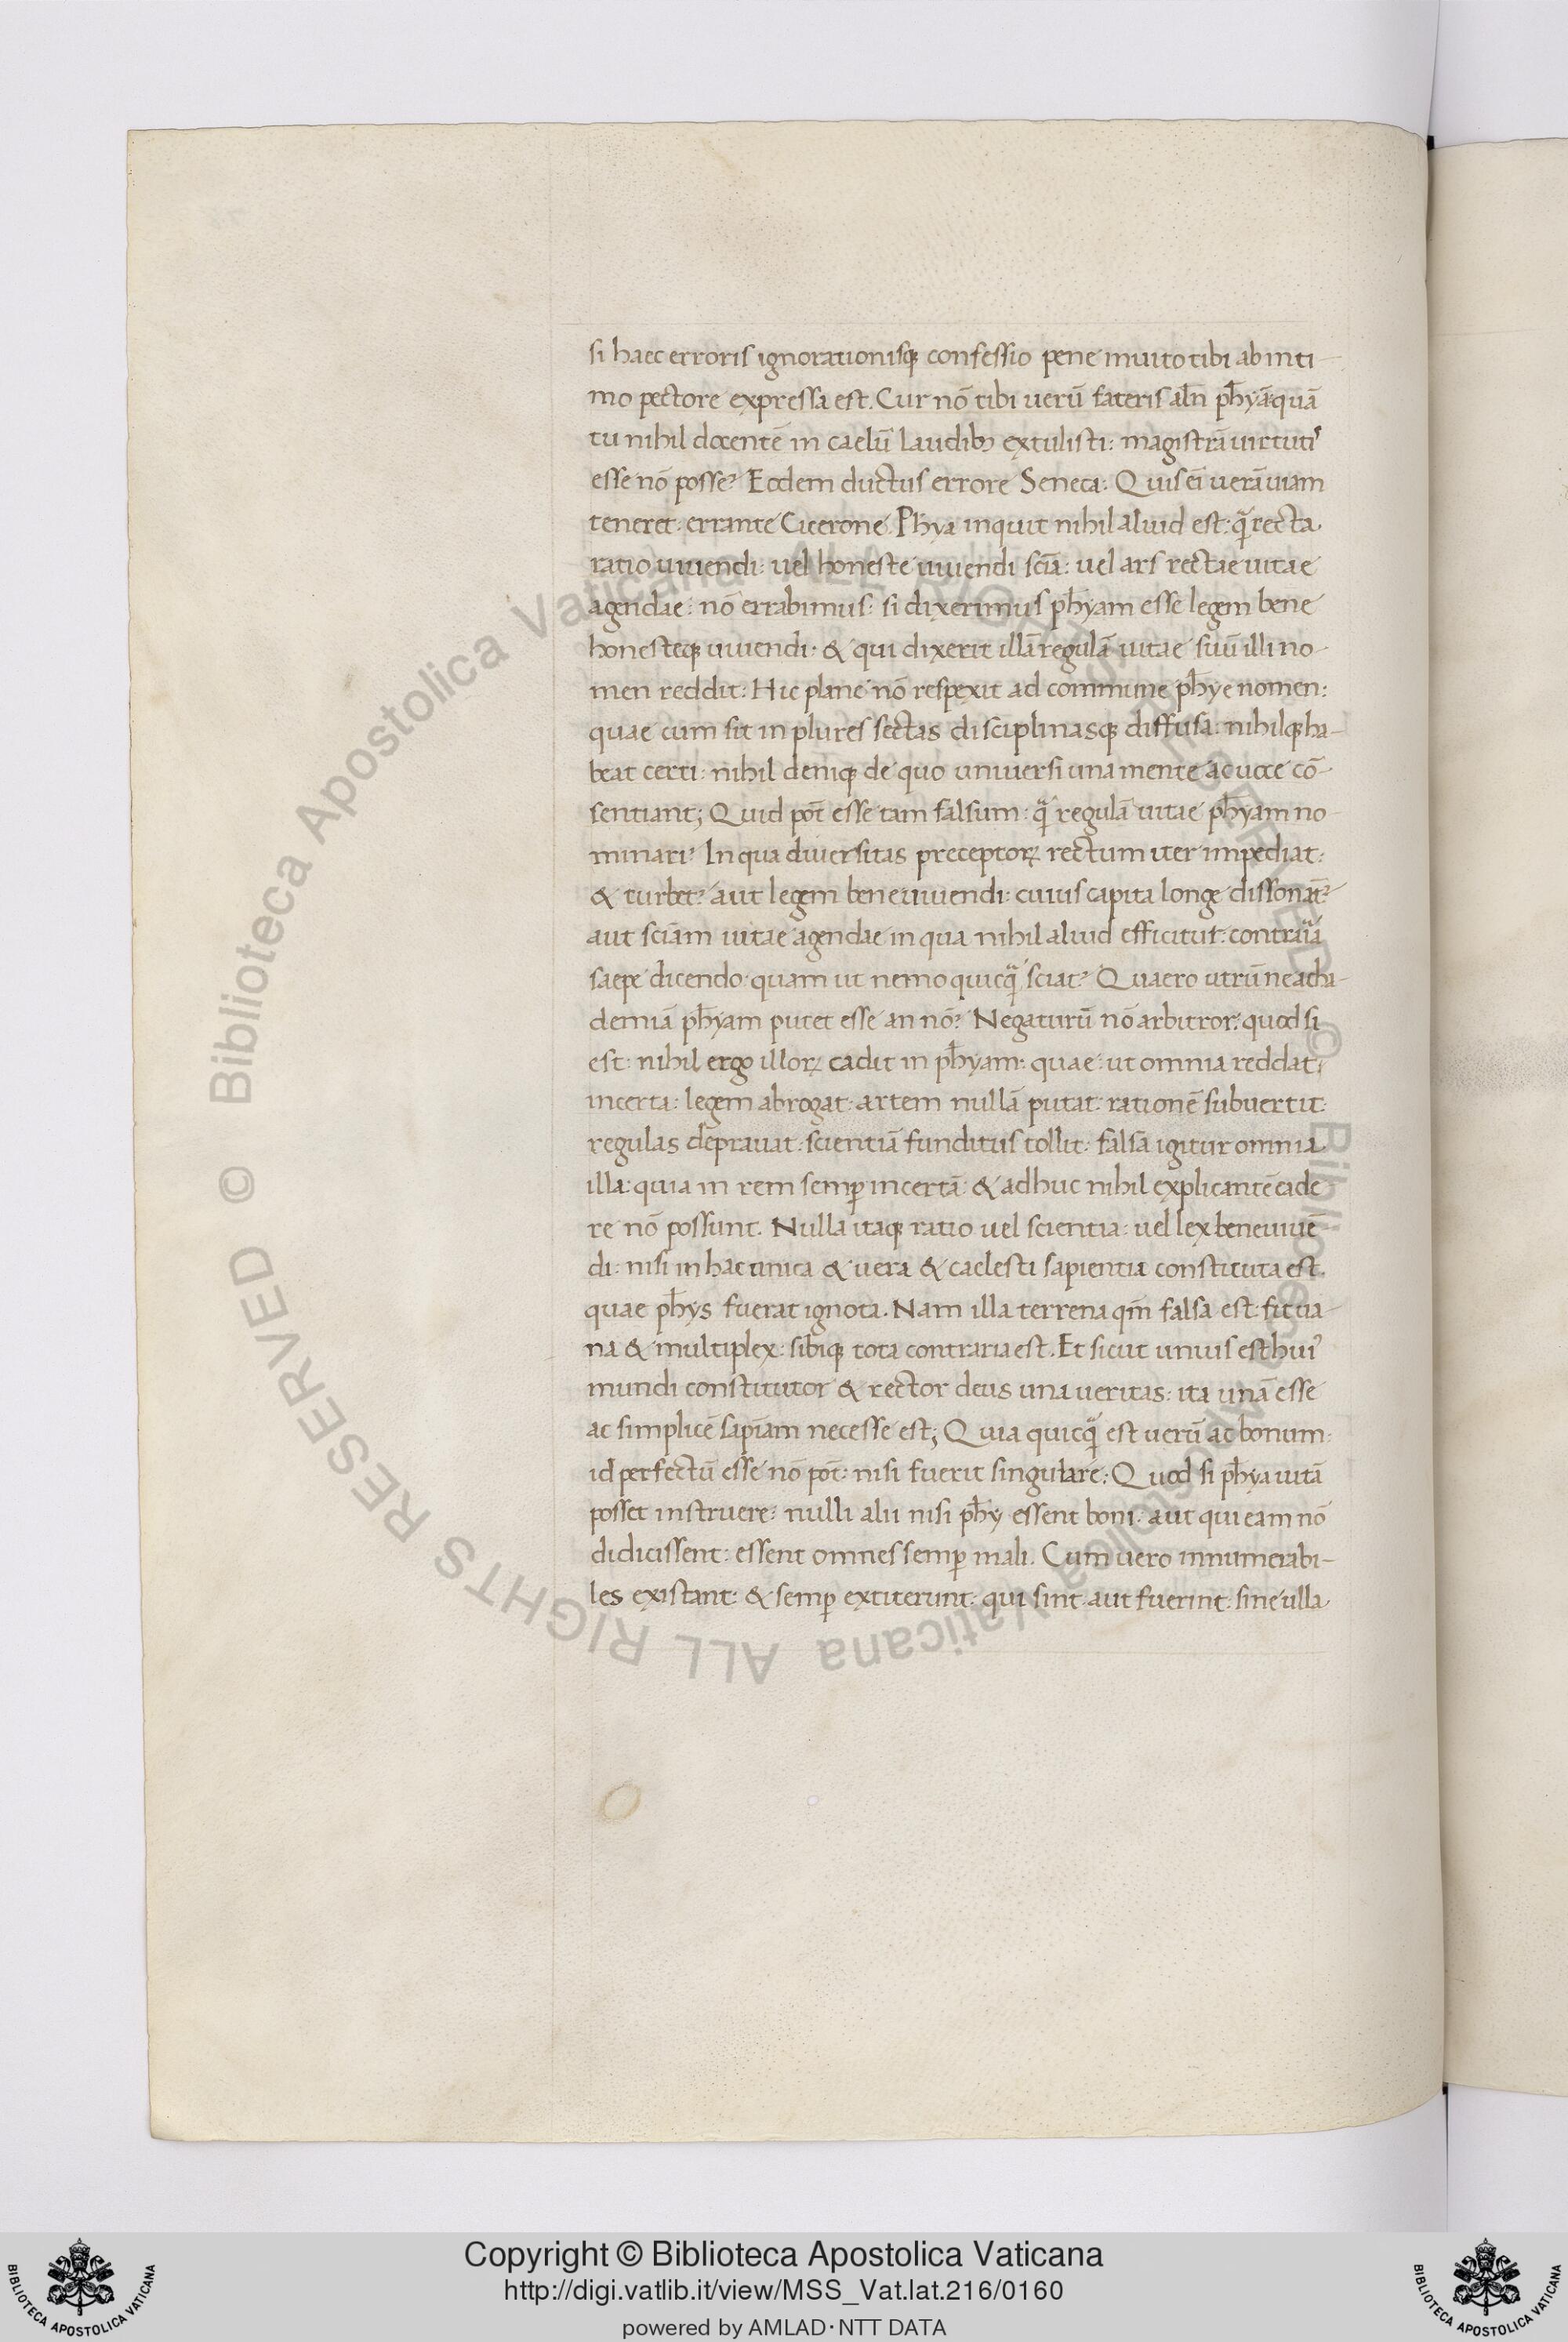 si haec erroris ignorationisq; confessio pene inuito tibi ab inti-
mo pectore expressa est. Cur nō tibi uerū fateris aln̄ phyā: quā
tu nihil docentē in caelū laudibꝫ extulisti: magistrā uirtutis
esse nō posse? Eodem ductus errore Seneca: Quis ei̅ uerā uiam
teneret: errante Cicerone. Phya inquit nihil aliud est: q̃ recta
ratio uiuendi: uel honeste uiuendi scīa: uel ars rectae uitae
agendae: nō errabimus: si dixerimus phyam esse legem bene
honesteq; uiuendi: & qui dixerit illā regulā uitae suū illi no-
men reddit: Hic plane nō respexit ad commune phye nomen:
quae cum sit in plures sectas disciplinasq; diffusa: nihilq; ha-
beat certi: nihil deniq; de quo uniuersi una mente ac uoce cō-
sentiant; Quid pōt esse tam falsum: q̃ regulā uitae phyam no-
minari? In qua diuersitas preceptorꝝ rectum iter impediat:
& turbet? aut legem bene uiuendi: cuius capita longe dissonāt?
aut scīam uitae agendae in qua nihil aliud efficitur: contraria
saepe dicendo: quam ut nemo quicq̃ sciat? Quaero utrū ne acha-
demiā phyam putet esse an nō? Negaturū nō arbitror: quod si
est: nihil ergo illorꝝ cadit in phyam: quae: ut omnia reddat
incerta: legem abrogat: artem nullā putat: rationē subuertit:
regulas deprauat: scientiā funditus tollit: falsa igitur omnia
illa: quia in rem semꝑ incertā: & adhuc nihil explicantē cade
re nō possunt. Nulla itaq; ratio uel scientia: uel lex bene uiuē
di: nisi in hac unica & uera & caelesti sapientia constituta est.
quae phys fuerat ignota. Nam illa terrena qm̄ falsa est: fit ua-
na & multiplex: sibiq; tota contraria est. Et sicut unus est huiꝰ
mundi constitutor & rector deus una ueritas: ita unā esse
ac simplicē sapīam necesse est; Quia quicq̃ est uerū ac bonum:
id perfectū esse nō pōt: nisi fuerit singulare: Quod si phya uitā
posset instruere: nulli alii nisi phy essent boni: aut qui eam nō
didicissent: essent omnes semꝑ mali. Cum uero innumerabi-
les existant: & semꝑ extiterunt: qui sint aut fuerint: sine ulla
© Biblioteca Apostolica Vaticana ALL RIGHTS RESERVED © Biblioteca Apostolica Vaticana ALL RIGHTS RESERVED
Copyright © Biblioteca Apostolica Vaticana
http://digi.vatlib.it/view/MSS_Vat.lat.216/0160
powered by AMLAD·NTT DATA
BIBLIOTECA APOSTOLICA VATICANA
BIBLIOTECA APOSTOLICA VATICANA